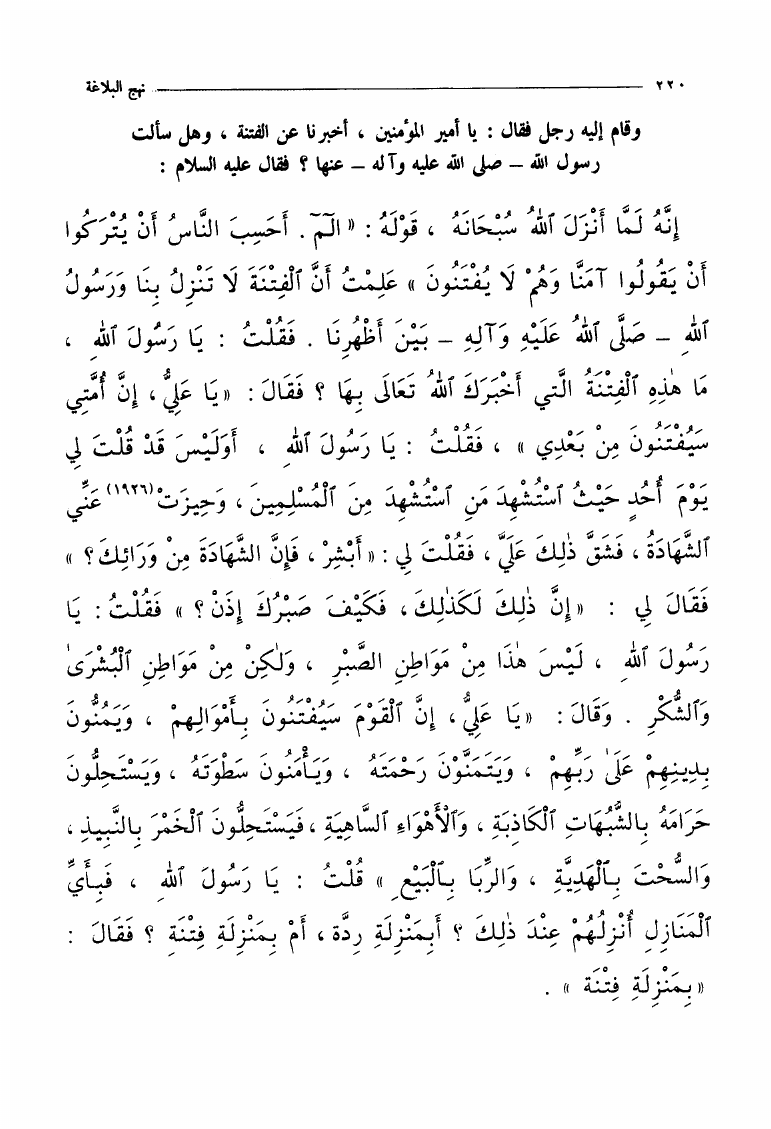 ٢٢٠ نهج البلاغة
وقام إليه رجل فقال : يا أمير المؤمنين ، أخبرنا عن الفتنة ، وهل سألت
رسول الله – صلى الله عليه وآله – عنها ؟ فقال عليه السلام :
إِنَّهُ لَمَّا أَنْزَلَ ٱللهُ سُبْحَانَهُ ، قَوْلَهُ : « الٓمٓ . أَحَسِبَ النَّاسُ أَنْ يُتْرَكُوا
أَنْ يَقُولُوا آمَنَّا وَهُمْ لَا يُفْتَنُونَ » عَلِمْتُ أَنَّ ٱلْفِتْنَةَ لَا تَنْزِلُ بِنَا وَرَسُولُ
ٱللهِ – صَلَّى ٱللهُ عَلَيْهِ وَآلِهِ – بَيْنَ أَظْهُرِنَا . فَقُلْتُ : يَا رَسُولَ ٱللهِ ،
مَا هٰذِهِ ٱلْفِتْنَةُ الَّتي أَخْبَرَكَ ٱللهُ تَعَالَى بِهَا ؟ فَقَالَ : « يَا عَلِيُّ ، إِنَّ أُمَّتِي
سَيُفْتَنُونَ مِنْ بَعْدِي » ، فَقُلْتُ : يَا رَسُولَ ٱللهِ ، أَوَلَيْسَ قَدْ قُلْتَ لِي
يَوْمَ أُحُدٍ حَيْثُ ٱسْتُشْهِدَ مَنِ ٱسْتُشْهِدَ مِنَ ٱلْمُسْلِمِينَ ، وَحِيزَتْ (١٩٢٦) عَنِّي
ٱلشَّهَادَةُ ، فَشَقَّ ذٰلِكَ عَلَيَّ ، فَقُلْتَ لِي : « أَبْشِرْ ، فَإِنَّ الشَّهَادَةَ مِنْ وَرَائِكَ ؟ »
فَقَالَ لِي : « إِنَّ ذٰلِكَ لَكَذٰلِكَ ، فَكَيْفَ صَبْرُكَ إِذَنْ ؟ » فَقُلْتُ : يَا
رَسُولَ ٱللهِ ، لَيْسَ هٰذَا مِنْ مَوَاطِنِ الصَّبْرِ ، وَلٰكِنْ مِنْ مَوَاطِنِ ٱلْبُشْرَىٰ
وَٱلشُّكْرِ . وَقَالَ : « يَا عَلِيُّ ، إِنَّ ٱلْقَوْمَ سَيُفْتَنُونَ بِأَمْوَالِهِمْ ، وَيَمُنُّونَ
بِدِينِهِمْ عَلَىٰ رَبِّهِمْ ، وَيَتَمَنَّوْنَ رَحْمَتَهُ ، وَيَأْمَنُونَ سَطْوَتَهُ ، وَيَسْتَحِلُّونَ
حَرَامَهُ بِالشُّبُهَاتِ ٱلْكَاذِبَةِ ، وَٱلْأَهْوَاءِ ٱلسَّاهِيَةِ ، فَيَسْتَحِلُّونَ ٱلْخَمْرَ بِالنَّبِيذِ ،
وَالسُّحْتَ بِٱلْهَدِيَّةِ ، وَالرِّبَا بِٱلْبَيْعِ » قُلْتُ : يَا رَسُولَ ٱللهِ ، فَبِأَيِّ
ٱلْمَنَازِلِ أُنْزِلُهُمْ عِنْدَ ذٰلِكَ ؟ أَبِمَنْزِلَةِ رِدَّة ، أَمْ بِمَنْزِلَةِ فِتْنَةٍ ؟ فَقَالَ :
« بِمَنْزِلَةِ فِتْنَة » .